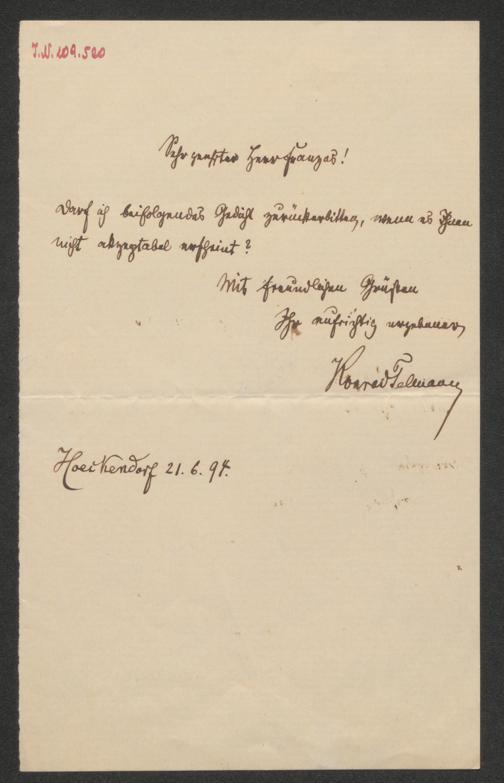 I.N. 109.520
Sehr geehrter Herr Franzos!
Darf ich beifolgendes Gedicht zurückerbitten, wenn es Ihnen
nicht akzeptabel erscheint?
Mit freundlichen Grüßen
Ihr aufrichtig ergebener
Konrad Telmann
Hoeckendorf 21.6.94.